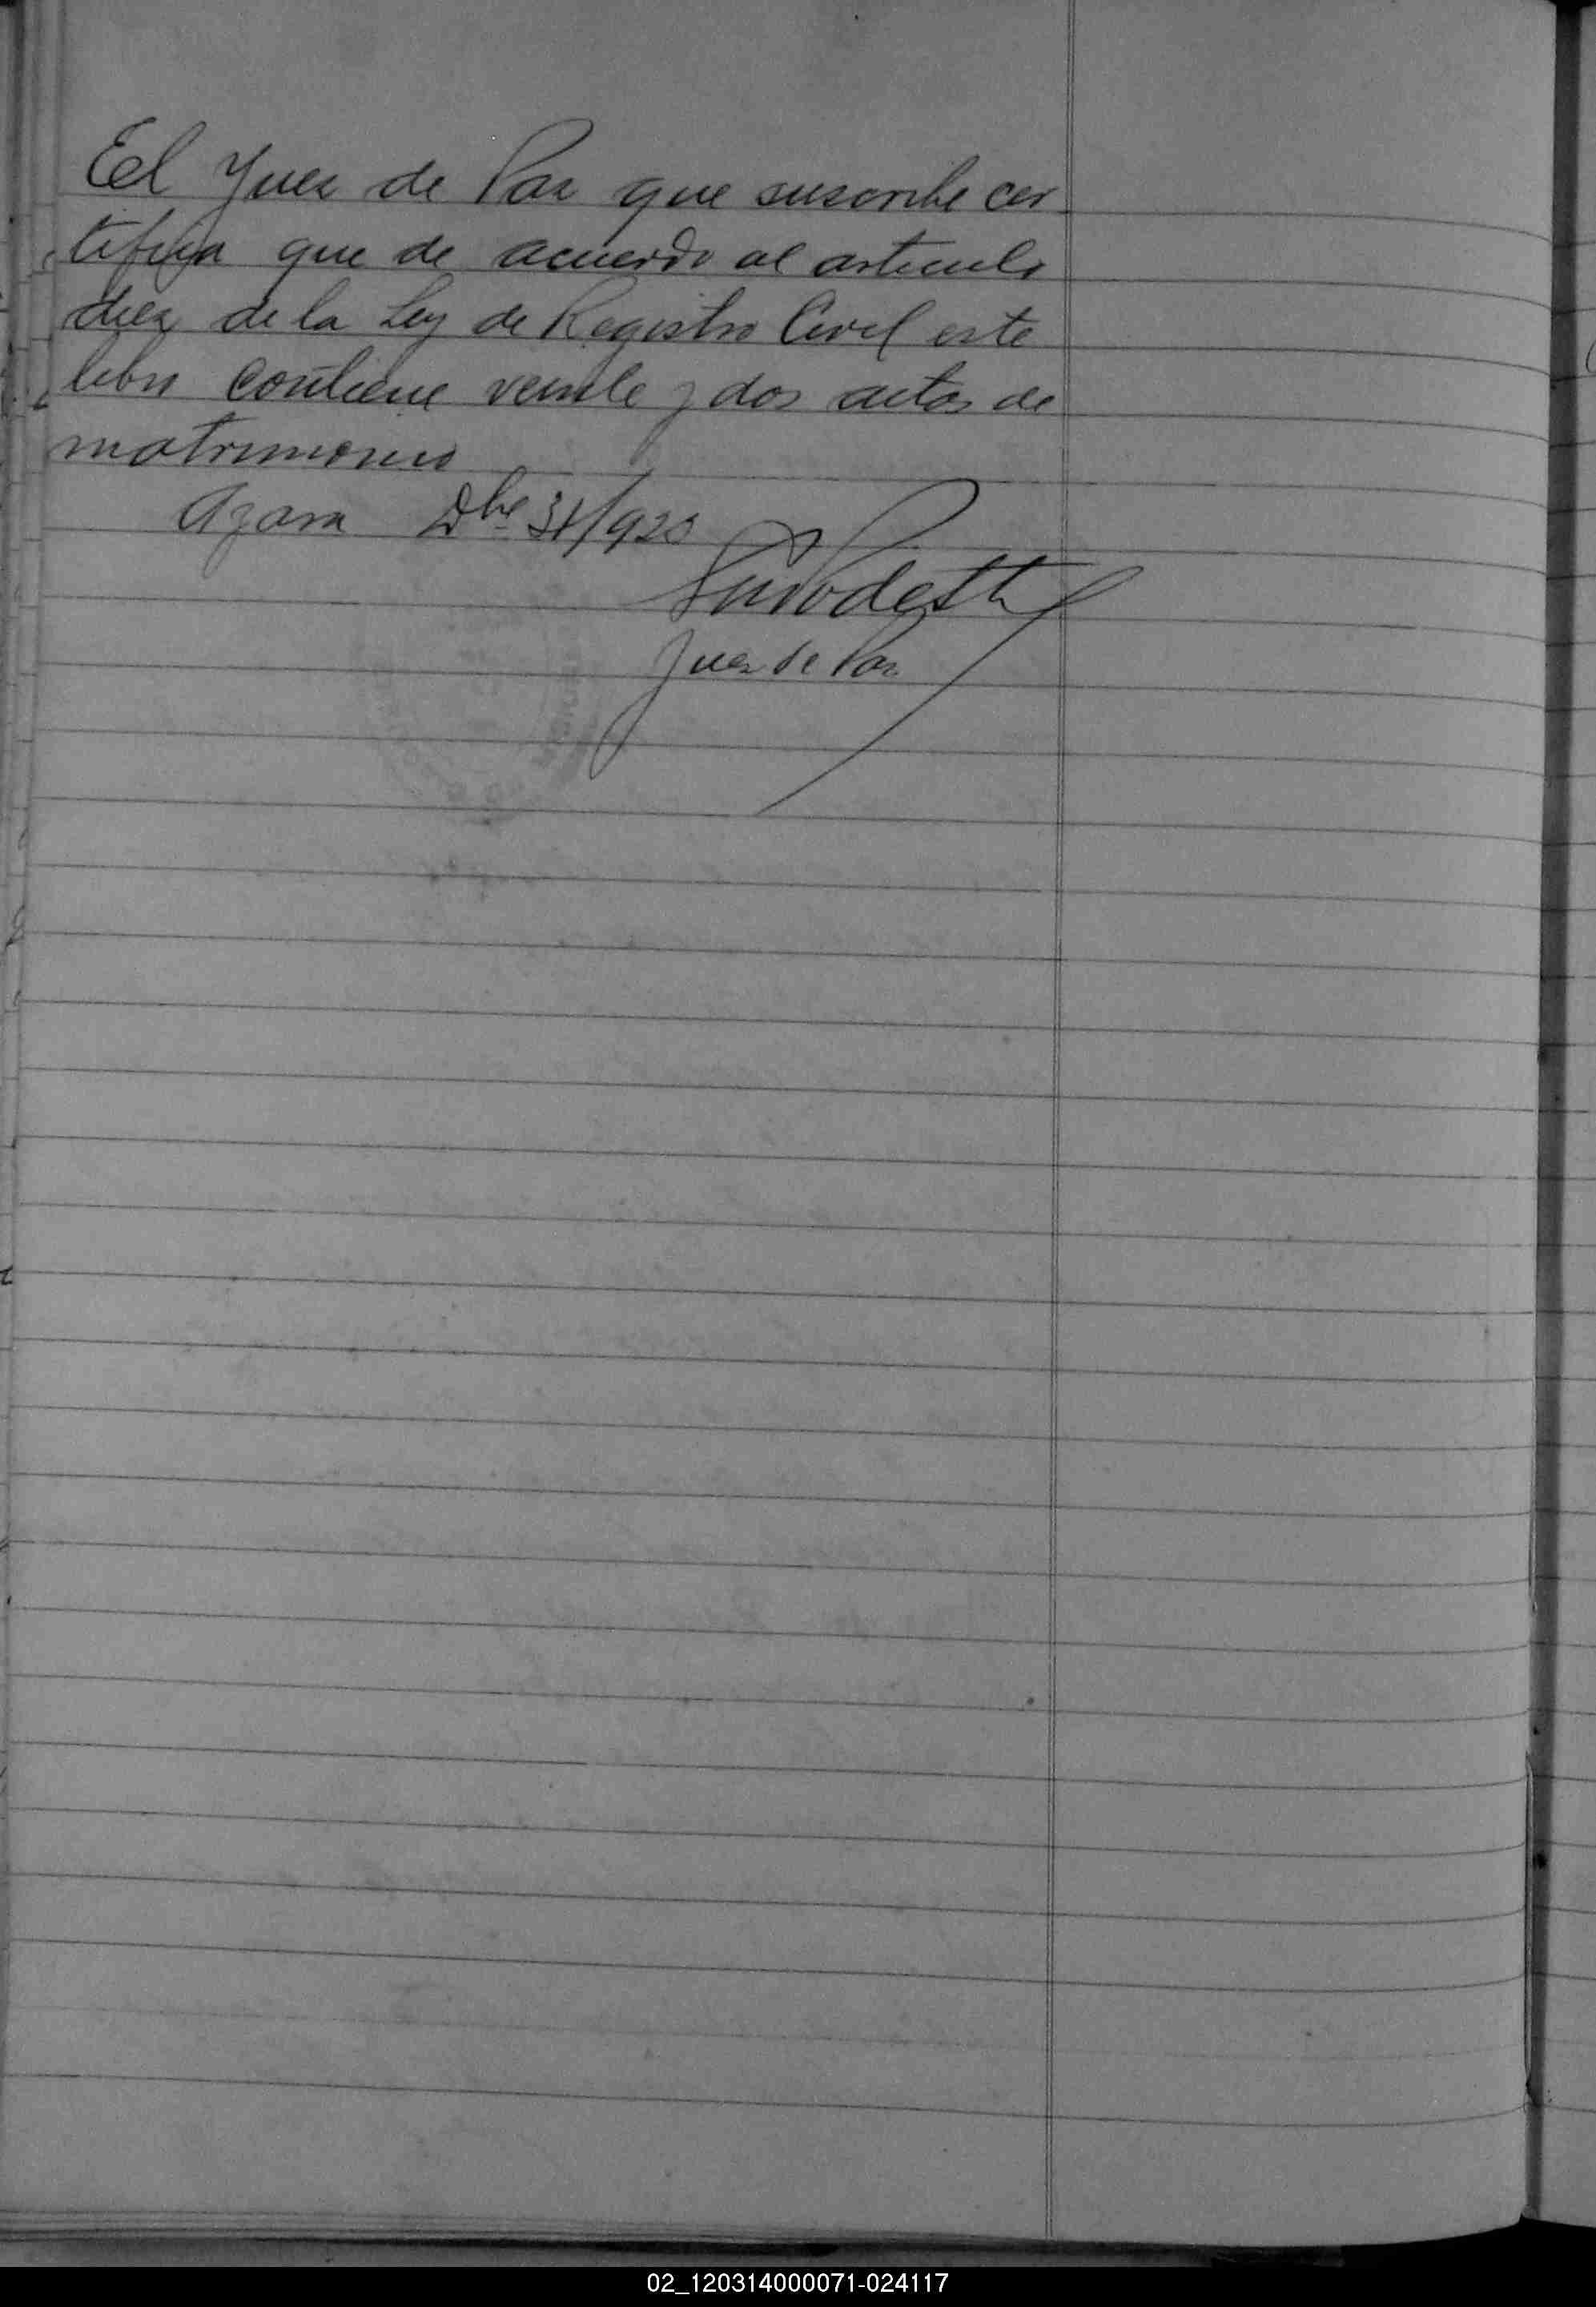 El Juez de Paz que suscribe cer
tifica que de acuerdo al articulo
diez de la Ley de Registro Civil este
libro contiene veinte y dos actas de
matrimonio
Azara Dbre 31/923
Podestá
Juez de Paz
02_120314000071-024117